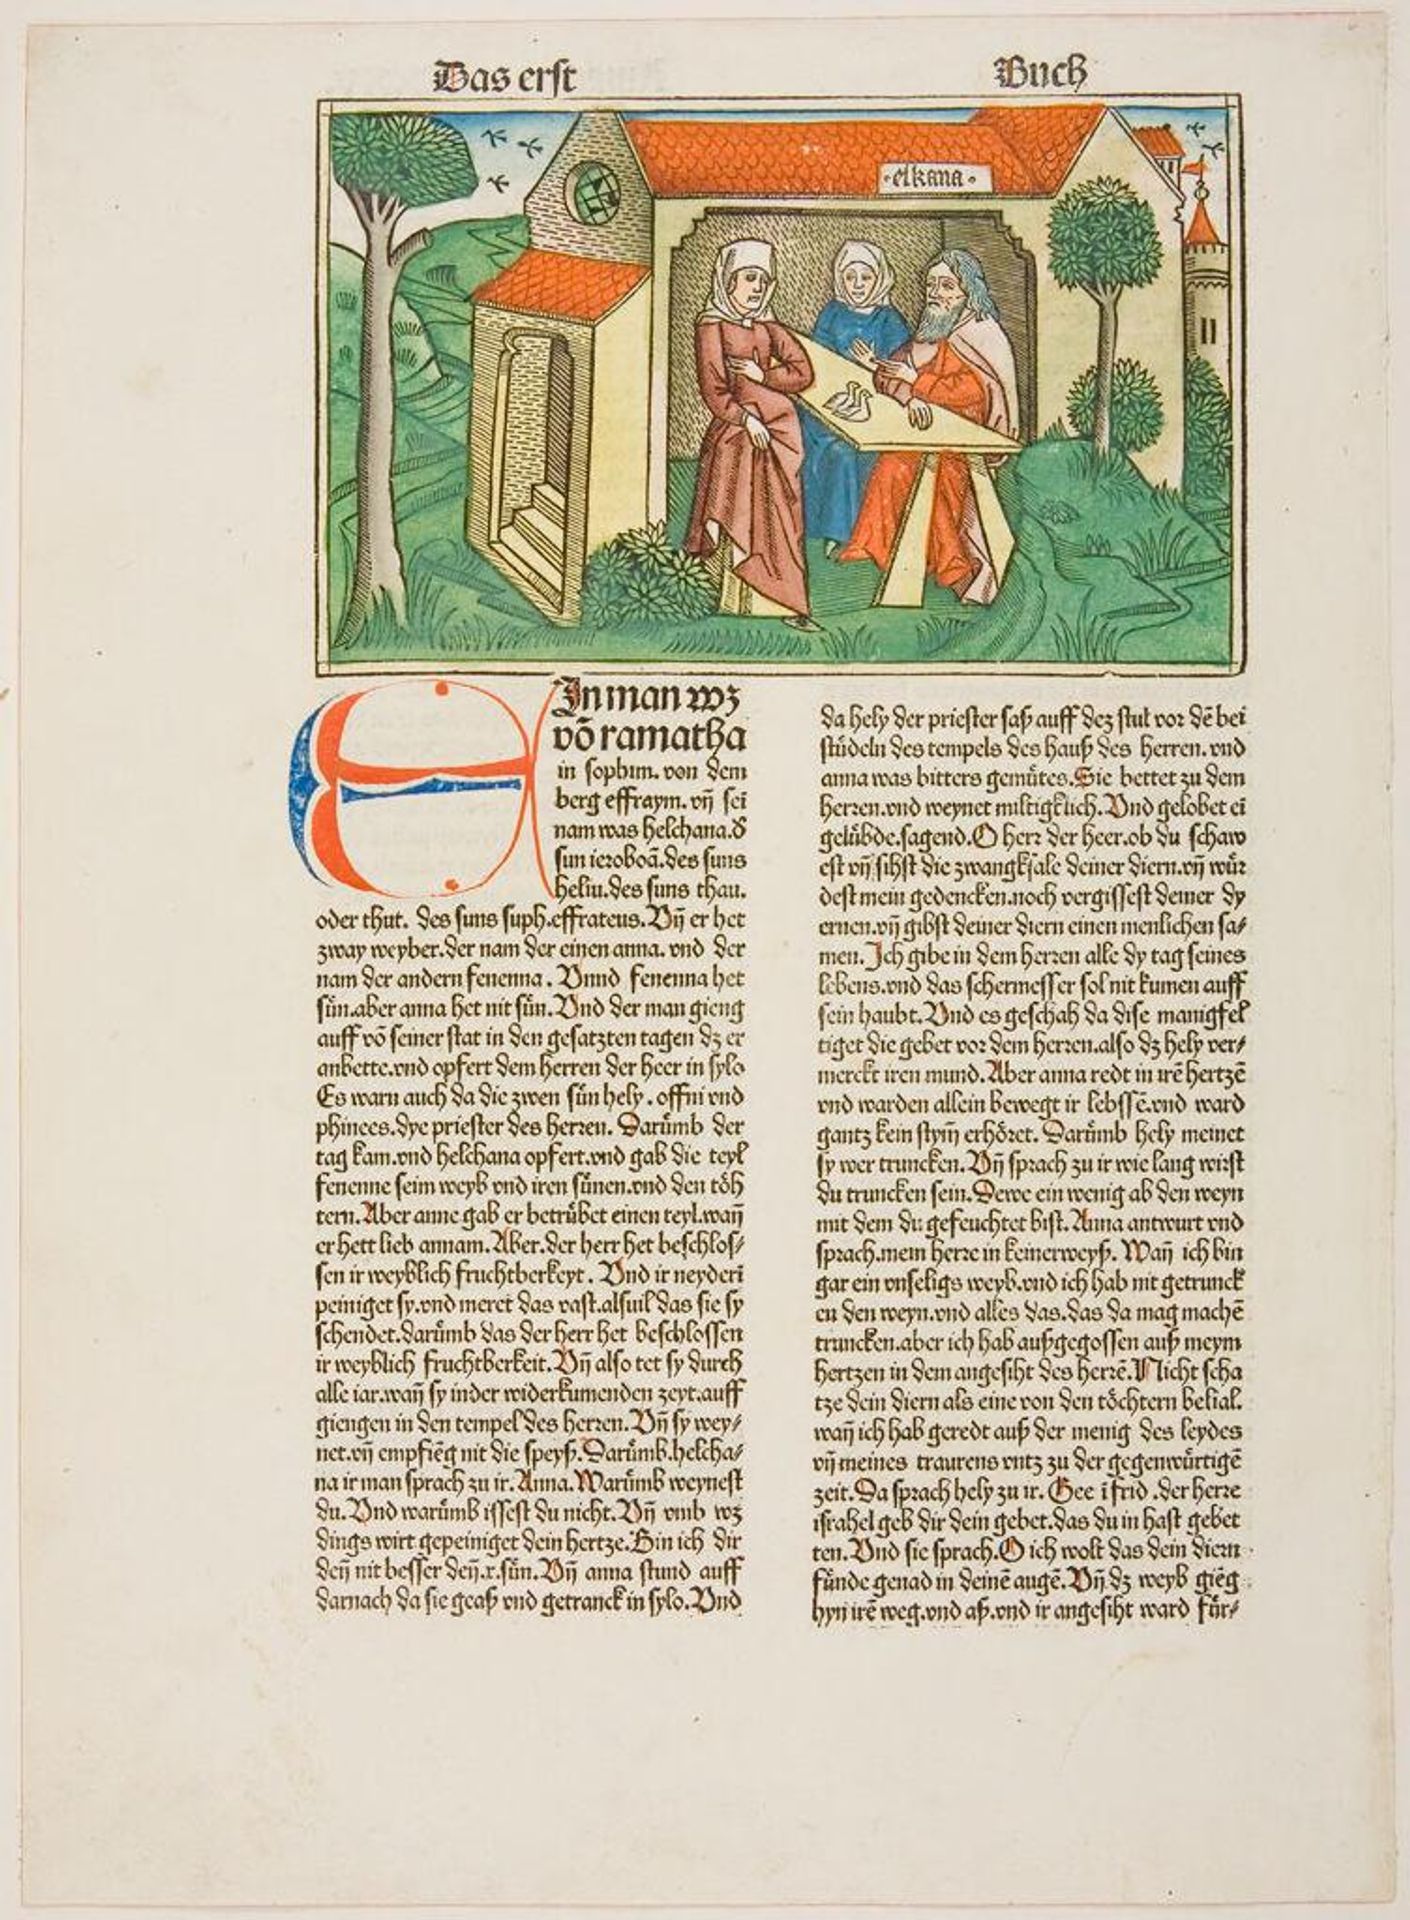 Das erst Buch
elkana
EIn man wz
vō ramatha
in sophim. von dem
berg effraym. vn̄ sei
nam was helchana. d͛
sun ieroboā. des suns
heliu. des suns thau.
oder thut. des suns suph. effrateus. Vn̄ er het
zway weyber. der nam der einen anna. vnd der
nam der andern fenenna. Vnnd fenenna het
sün. aber anna het nit sün. Vnd der man gieng
auff vō seiner stat in den gesatzten tagen dz er
anbette. vnd opfert dem herren der heer in sylo
Es warn auch da die zwen sün hely. offni vnd
phinees. dye priester des herren. Darümb der
tag kam. vnd helchana opfert. vnd gab die teyl
fenenne seim weyb vnd iren sünen. vnd den töh
tern. Aber anne gab er betrübet einen teyl. wan̄
er hett lieb annam. Aber. der herr het beschlos⸗
sen ir weyblich fruchtberkeyt. Vnd ir neyderī
peiniget sy. vnd meret das vast. alsuil das sie sy
schendet. darümb das der herr het beschlossen
ir weyblich fruchtberkeit. Vn̄ also tet sy durch
alle iar. wan̄ sy inder widerkumenden zeyt. auff
giengen in den tempel des herren. Vn̄ sy wey⸗
net. vn̄ empfiēg nit die speyß. Darümb. helcha⸗
na ir man sprach zu ir. Anna. Warümb weynest
du. Vnd warümb issest du nicht. Vn̄ vmb wz
dings wirt gepeiniget dein hertze. Bin ich dir
den̄ nit besser den̄. x. sün. Vn̄ anna stund auff
darnach da sie geaß vnd getranck in sylo. Vnd
da hely der priester saß auff dez stul vor dē bei
stüdeln des tempels des hauß des herren. vnd
anna was bitters gemütes. Sie bettet zu dem
herren. vnd weynet miltigklich. Vnd gelobet eī
gelübde. sagend. O herr der heer. ob du schaw
est vn̄ sihst die zwangksale deiner diern. vn̄ wür
dest mein gedencken. noch vergissest deiner dy
ernen. vn̄ gibst deiner diern einen menlichen sa⸗
men. Ich gibe in dem herren alle dy tag seines
lebens. vnd das schermesser sol nit kumen auff
sein haubt. Vnd es geschah da dise manigfel
tiget die gebet vor dem herren. also dz hely ver⸗
merckt iren mund. Aber anna redt in irē hertzē
vnd warden allein bewegt ir lebssē. vnd ward
gantz kein stym̄ erhöret. Darümb hely meinet
sy wer truncken. Vn̄ sprach zu ir wie lang wirst
du truncken sein. Dewe ein wenig ab den weyn
mit dem du gefeuchtet bist. Anna antwurt vnd
sprach. mein herre in keinerweyß. Wan̄ ich bin
gar ein vnseligs weyb. vnd ich hab nit getrunck
en den weyn. vnd alles das. das da mag machē
truncken. aber ich hab außgegossen auß meym
hertzen in dem angesiht des herrē. Nicht scha
tze dein diern als eine von den töchtern belial.
wan̄ ich hab geredt auß der menig des leydes
vn̄ meines traurens vntz zu der gegenwürtigē
zeit. Da sprach hely zu ir. Gee ī frid. der herre
israhel geb dir dein gebet. das du in hast gebet
ten. Vnd sie sprach. O ich wolt das dein diern
fünde genad in deinē augē. Vn̄ dz weyb giēg
hyn irē weg. vnd aß. vnd ir angesiht ward für⸗